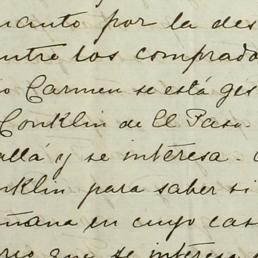 uanto por la des
ntre los comprado
o Carmen se está ges
Conklin de El Paso.
allá y se interesa.
nklin para saber si
ñana en cuyo cas
rio que se interesa